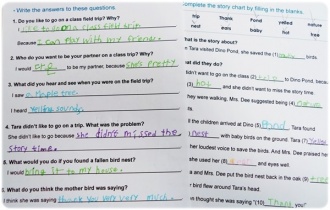 - Write the answers to these questions.
1. Do you like to go on a class field trip? Why?
I like to go on a class field trip
Because I can play with my friends.
2. Who do you want to be your partner on a class trip? Why?
I would to be my partner, because she's pretty
3. What did you hear and see when you were on the field trip?
I saw a maple tree.
I heard yelling sounds.
4. Tara didn't like to go on a trip. What was the problem?
She didn't like to go because she didn't missed the
story time.
5. What would you do if you found a fallen bird nest?
I would bring it to my house.
6. What do you think the mother bird was saying?
I think she was saying thank you very very much.
complete the story chart by filling in the blanks.
trip Thank Pond yelled nature
nest ears baby hot tree
hat is the story about?
n Tara visited Dino Pond, she saved the (1) baby birds
at did they do?
didn't want to go on the class (2) to Dino Pond. beca
(3) hot and she didn't want to miss the story time.
hey were walking, Mrs. Dee suggested being (4)
the children arrived at Dino (5) Pond, Tara found
nest with baby birds on the ground. Tara (7) yelled
her loudest voice to save the birds. And Mrs. Dee praised he
she used her (8) and eyes well.
a and Mrs. Dee put the bird nest back in the oak (9) tree
r bird flew around Tara's head.
n thought she was saying "(10) Thank you!"